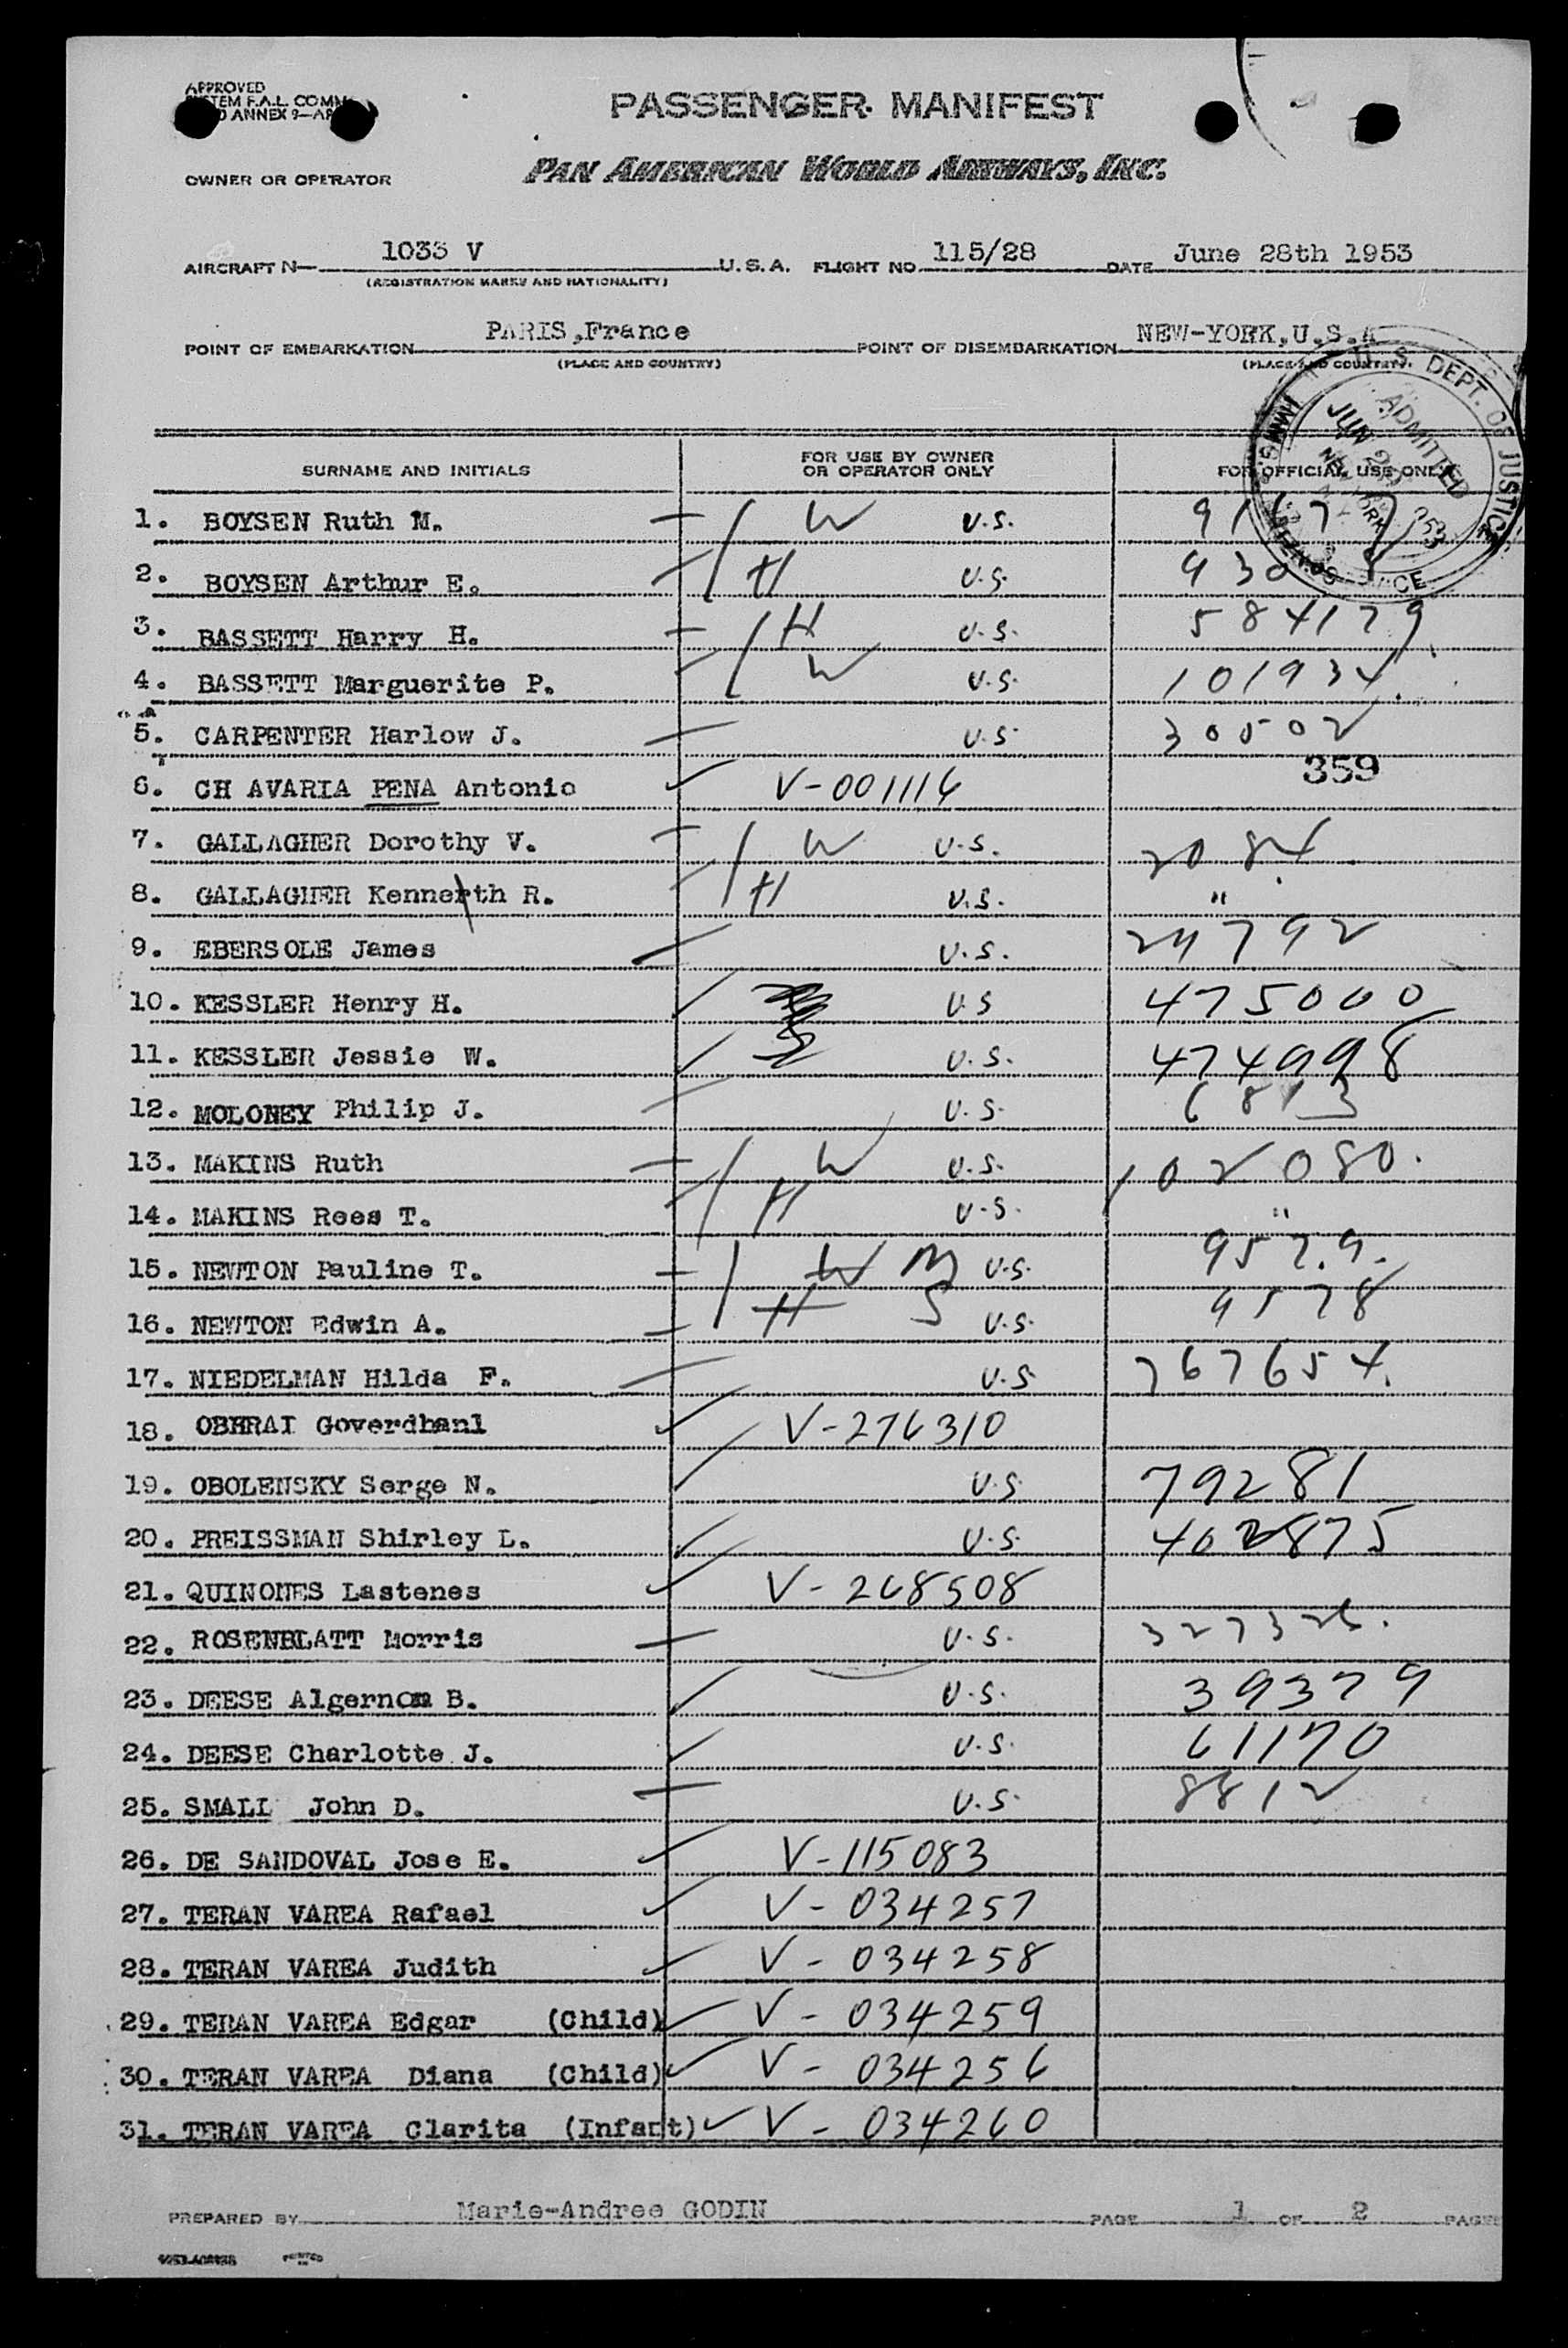 APPROVED
SYSTEM F.A.L. COMM
ANNEX 9—AP
PASSENGER MANIFEST
OWNER OR OPERATOR
PAN AMERICAN WORLD AIRWAYS, INC.
AIRCRAFT N— 1033 V U.S.A. FLIGHT NO 115/28 DATE June 28th 1953
(REGISTRATION MARKS AND NATIONALITY)
POINT OF EMBARKATION PARIS,France POINT OF DISEMBARKATION NEW-YORK,U.S.A
(PLACE AND COUNTRY) (PLACE AND COUNTRY)
U. S. DEPT. OF JUSTICE
ADMITTED
JUN
NEW YORK
SURNAME AND INITIALS FOR USE BY OWNER OR OPERATOR ONLY FOR OFFICIAL USE ONLY
1. BOYSEN Ruth M. W U.S.
2. BOYSEN Arthur E. H U.S.
3. BASSETT Harry H. H U.S. 584179
4. BASSETT Marguerite P. W U.S. 101934
5. CARPENTER Harlow J. U.S. 30502
359
6. CH AVARIA PENA Antonio V-001116
7. GALLAGHER Dorothy V. W U.S. 2084
8. GALLAGHER Kenneth R. H U.S. "
9. EBERSOLE James U.S. 24792
10. KESSLER Henry H. U.S 475000
11. KESSLER Jessie W. U.S. 474998
12. MOLONEY Philip J. U.S. 6813
13. MAKINS Ruth W U.S. 102080.
14. MAKINS Rees T. H U.S. "
15. NEWTON Pauline T. W M U.S. 9579.
16. NEWTON Edwin A. H S U.S. 9578
17. NIEDELMAN Hilda F. U.S 767654.
18. OBERAI Goverdhanl V-276310
19. OBOLENSKY Serge N. U.S. 79281
20. PREISSMAN Shirley L. U.S. 402875
21. QUINONES Lastenes V-268508
22. ROSENBLATT Morris U.S.
23. DEESE Algernon B. U.S. 39379
24. DEESE Charlotte J. U.S. 61170
25. SMALL John D. U.S. 8812
26. DE SANDOVAL Jose E. V-115083
27. TERAN VAREA Rafael V-034257
28. TERAN VAREA Judith V-034258
29. TERAN VAREA Edgar (Child) V-034259
30. TERAN VAREA Diana (Child) V-034256
31. TERAN VAREA Clarita (Infant) V-034260
PREPARED BY Marie-Andree GODIN PAGE 1 OF 2 PAGES